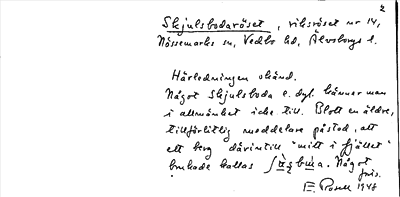 2
Skjulsbodaröset, riksröset nr 14,
Nössemarks sn, Vedbo hd, Älvsborgs l.
Härledningen okänd.
Något Skjulsboda e. dyl. känner man
i allmänhet icke till. Blott en äldre,
tillförlitlig meddelare påstod, att
ett berg därintill "mitt i fjället"
brukade kallas Något
1946